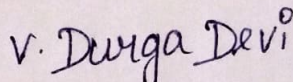 V. Durga Devi